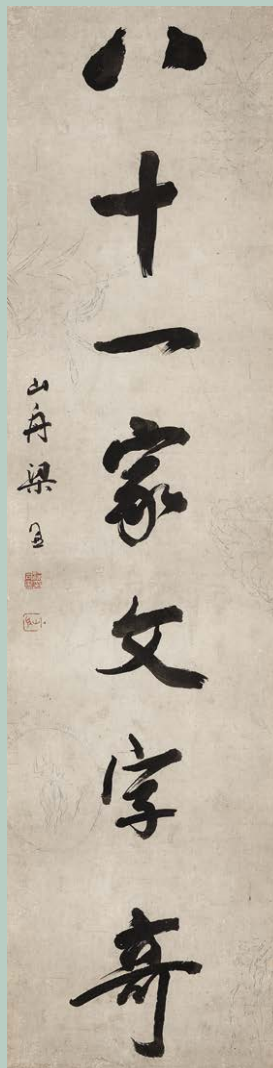 八十一家文字奇
山舟梁同書